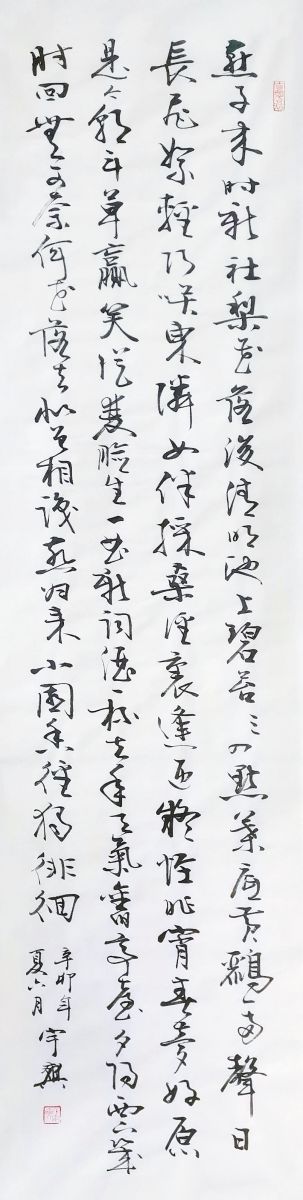 燕子来时新社梨花落後清明池上碧苔三四點葉底黄鸝一两聲日
長飛絮輕巧咲東隣女伴採桑徑裏逢迎疑怪昨宵春夢好原
是今朝斗草贏笑從雙臉生一曲新詞酒一杯去年天氣舊亭臺夕陽西下幾
时回無可奈何花落去似曾相識燕归来小園香徑獨徘徊
辛卯年
夏六月宇